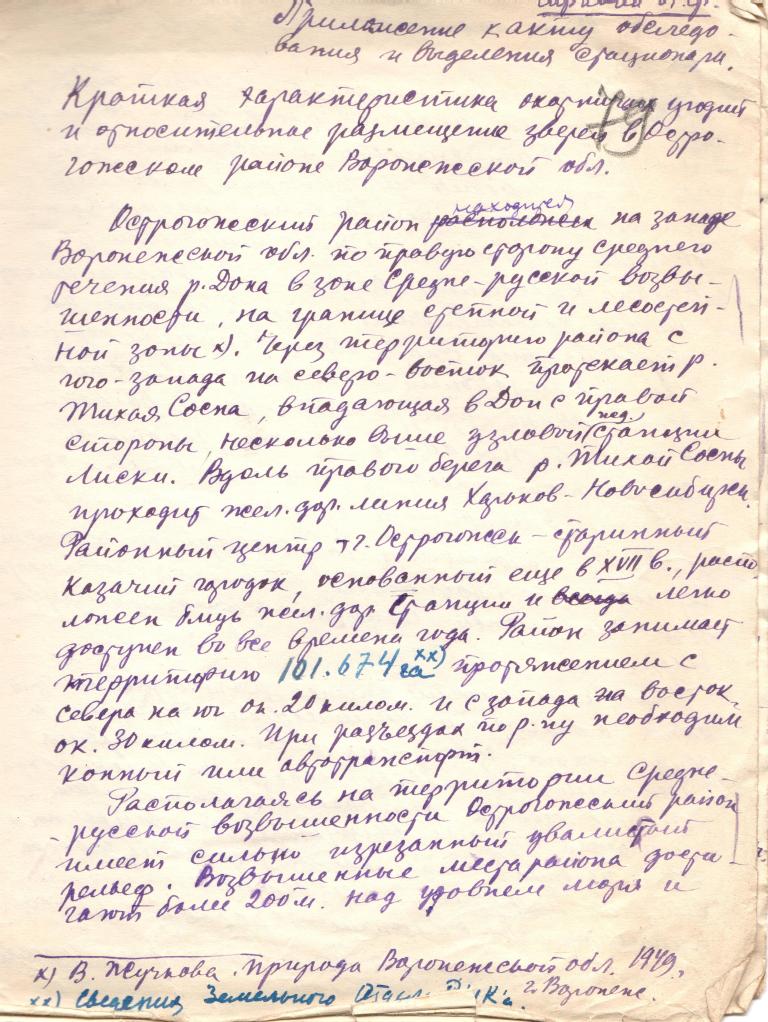 Приложение к акту обследо-
вания и выделения стационара.
79
Краткая характеристика охотничьих угодий
и относительное размещение зверей в Остро-
гожском районе Воронежской обл.
находится
Острогожский район расположен на западе
Воронежской обл. по правую сторону среднего
течения р. Дона в зоне Средне-русской возвы-
шенности, на границе степной и лесостеп-
ной зоны х). Через территорию района с
юго-запада на северо-восток протекает р.
Тихая Сосна, впадающая в Дон с правой
жед.
стороны, несколько выше узловой станции
Лиски. Вдоль правого берега р. Тихой Сосны
проходит жел. дор. линия Харьков-Новосибирск.
Районный центр - г. Острогожск - старинный
казачий городок, основанный еще в XVII в., распо-
ложен близь жел. дор. станции и всегда легко
доступен во все времена года. Район занимает
территорию 101.674 га хх) протяжением с
севера на юг ок. 20 килом. и с запада на восток
ок. 30 килом. При разъездах по р-ну необходим
конный или автотранспорт.
Располагаясь на территории Средне-
русской возвышенности Острогожский район
имеет сильно изрезанный увалистый
рельеф. Возвышенные места района дости-
гают более 200 м. над уровнем моря и
х) В. Жучкова. Природа Воронежской обл. 1949.
г. Воронеж.
хх) Сведения Земельного Отдел.